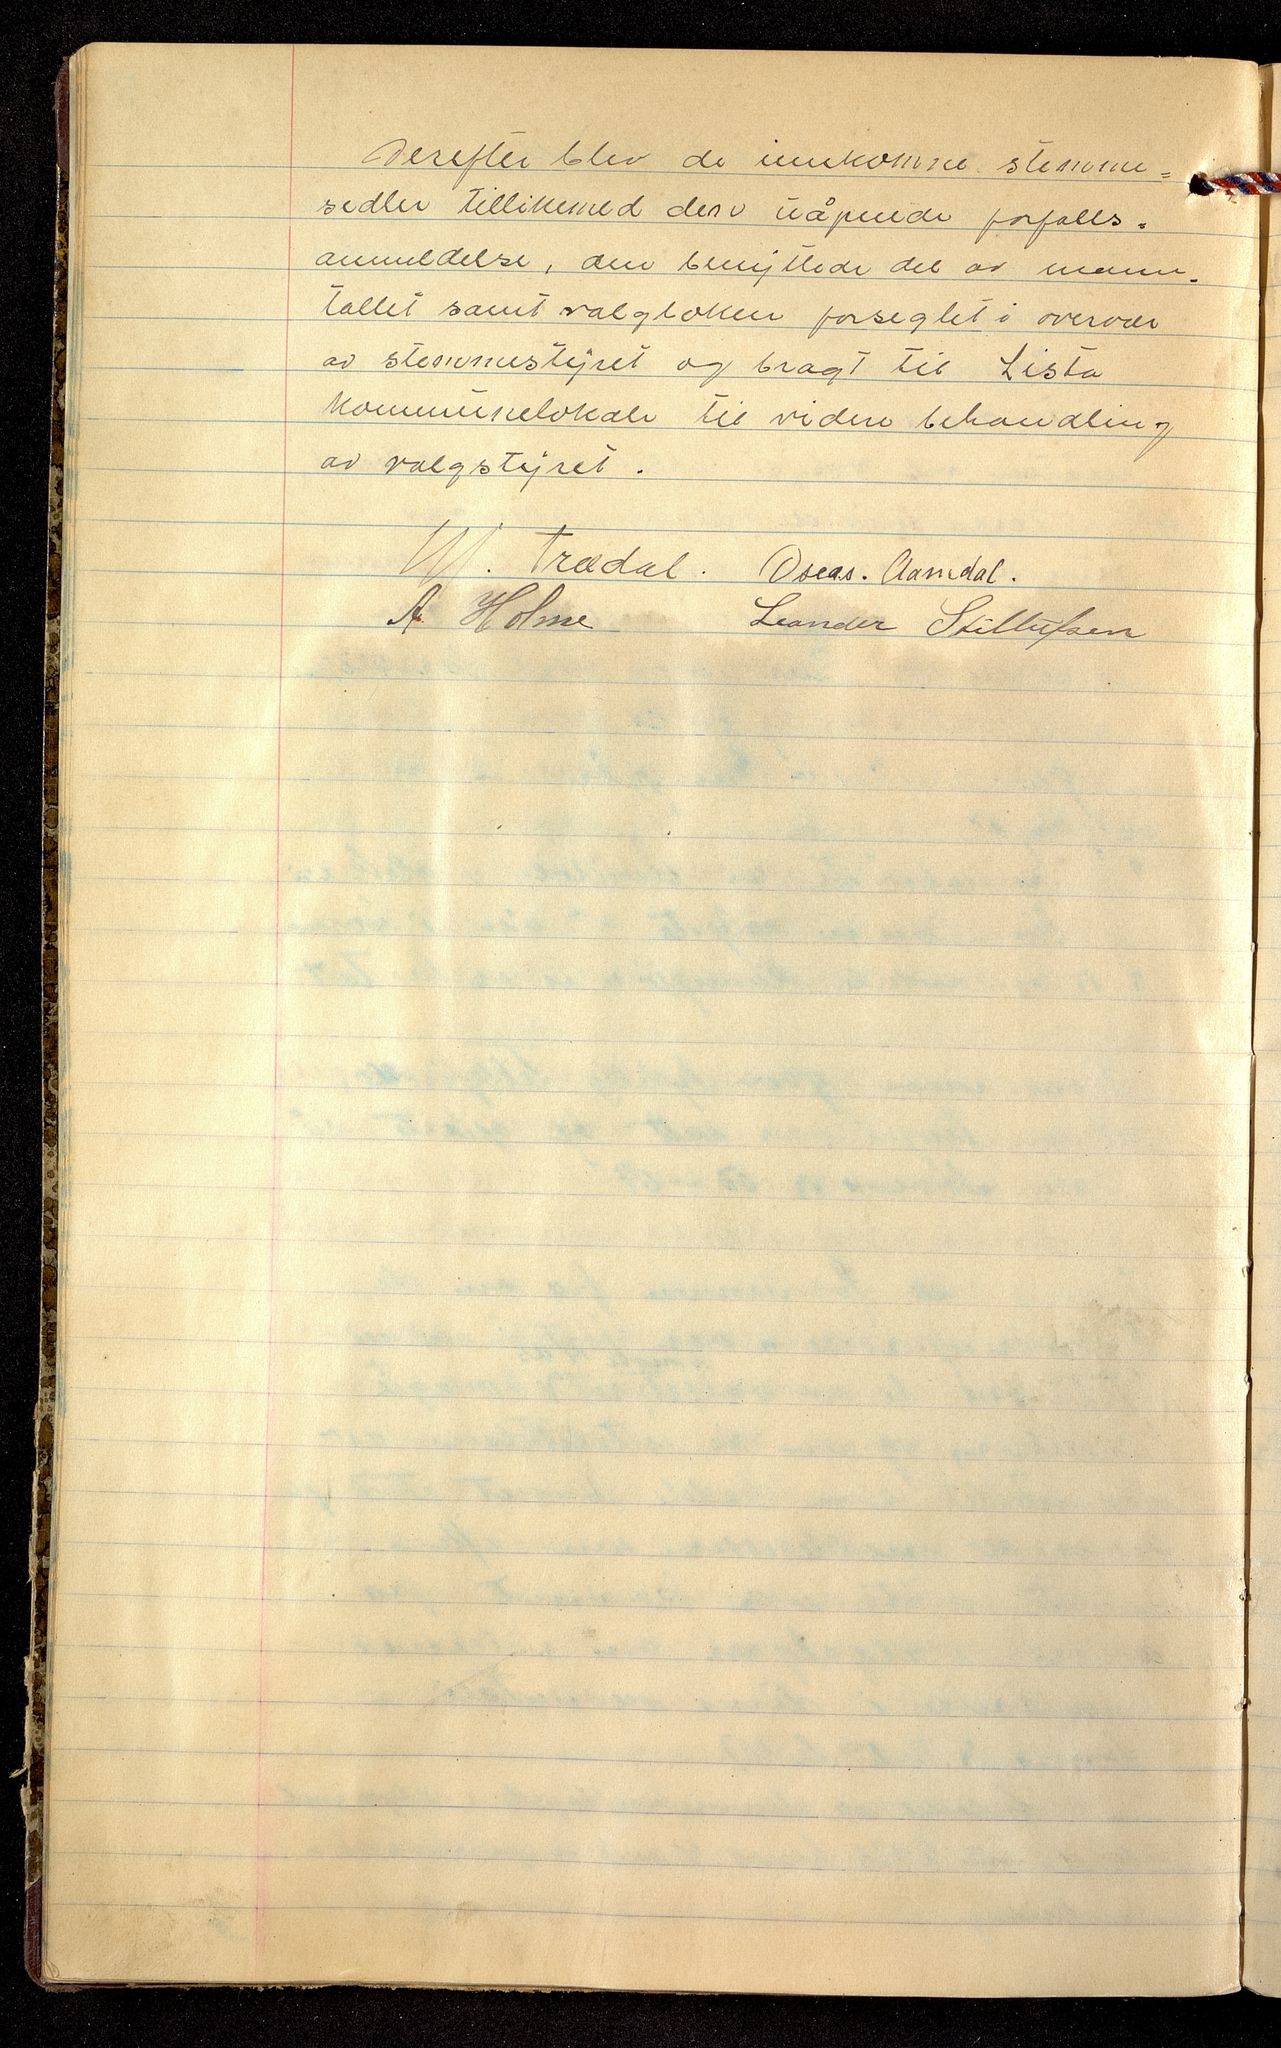 Derefter blev de innkomne stemme=
sedler tillikemed den uåpnede forfalls=
anmeldelse, den benyttede del av mann-
tallet samt valgboken forseglet i overvær
av stemmestyret og bragt til Lista
kommunelokale til videre behandling
av valgstyret.
W. Trædal. Oseas. Aamdal.
A Holme Leander Stillufsen